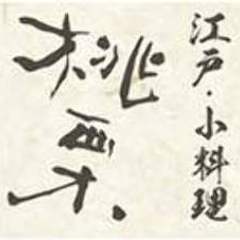 江戸・小料理
桃栗